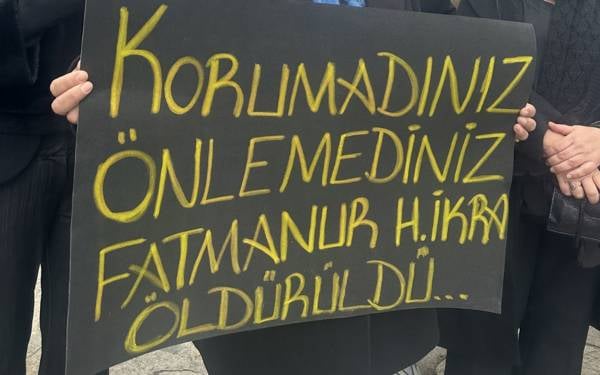 KORUMADINIZ
ÖNLEMEDİNİZ
FATMANUR H.İKRA
ÖLDÜRÜLDÜ...